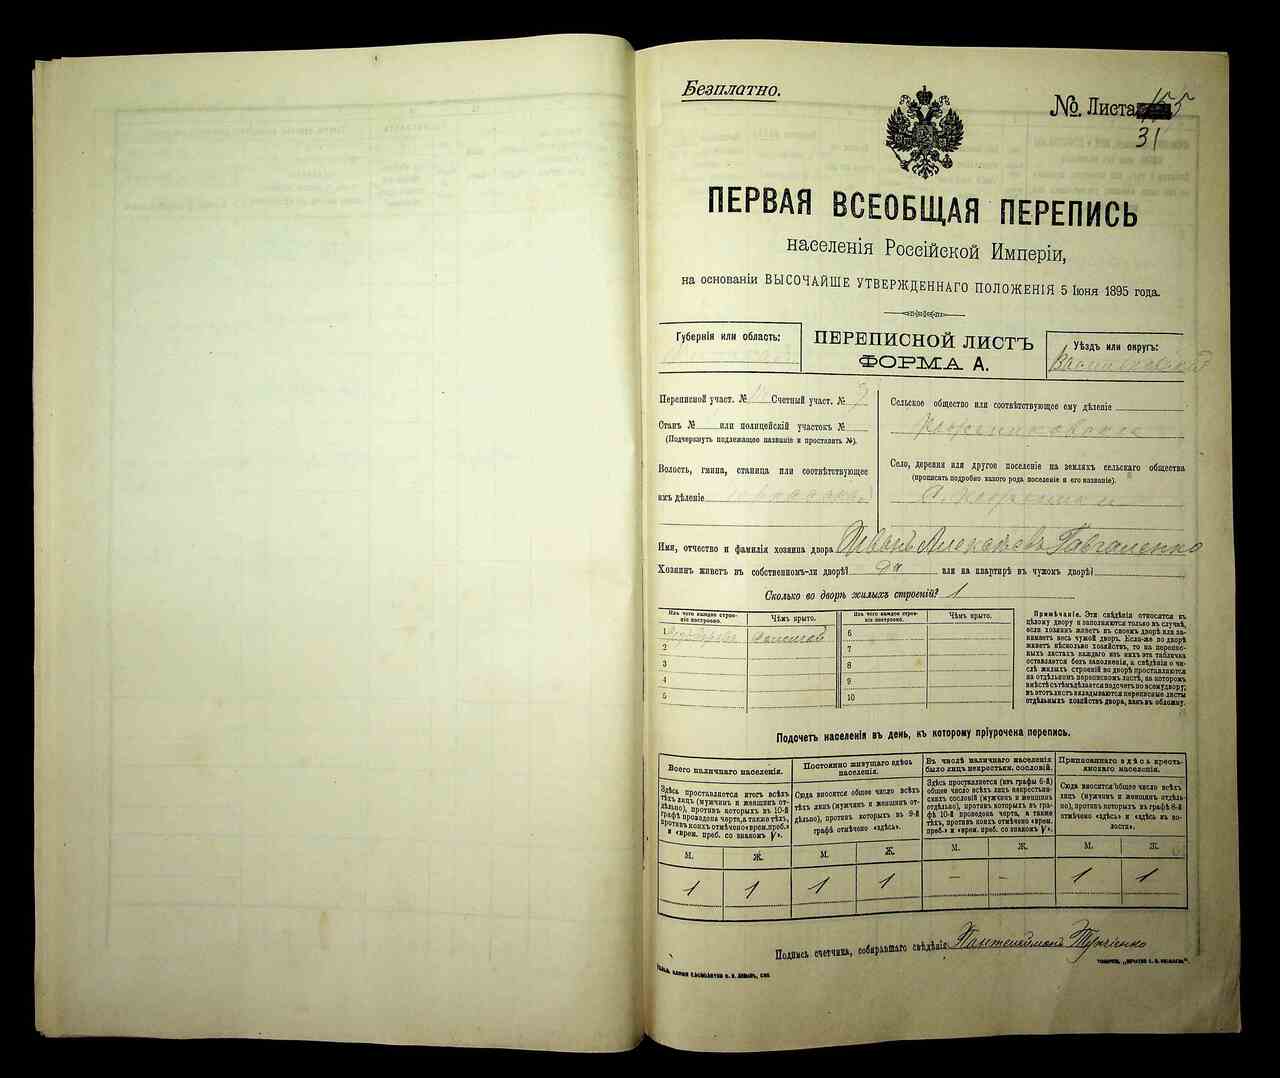 Безплатно.
№ Листа 155
31
ПЕРВАЯ ВСЕОБЩАЯ ПЕРЕПИСЬ
населенія Россійской Имперіи,
на основаніи ВЫСОЧАЙШЕ УТВЕРЖДЕННАГО ПОЛОЖЕНІЯ 5 Іюня 1895 года.
Губернія или область:
ПЕРЕПИСНОЙ ЛИСТЪ
ФОРМА А.
Уѣздъ или округъ:
Переписной участ. № Счетный участ. №
Станъ № или полицейскій участокъ №
(Подчеркнуть подлежащее названіе и проставить №).
Волость, гмина, станица или соотвѣтствующее
имъ дѣленіе
Сельское общество или соотвѣтствующее ему дѣленіе
Село, деревня или другое поселеніе на земляхъ сельскаго общества
(прописать подробно какого рода поселеніе и его названіе).
Имя, отчество и фамилія хозяина двора Иванъ
Хозяинъ живетъ въ собственномъ-ли дворѣ? да или на квартирѣ въ чужомъ дворѣ?
Сколько во дворѣ жилыхъ строеній? 1
Изъ чего каждое строе-
ніе построено.
Чѣмъ крыто.
Изъ чего каждое строе-
ніе построено.
Чѣмъ крыто.
1 соломой 6
2 7
3 8
4 9
5 10
Примѣчаніе. Эти свѣдѣнія относятся къ
цѣлому двору и заполняются только въ случаѣ,
если хозяинъ живетъ въ своемъ дворѣ или за-
нимаетъ весь чужой дворъ. Если-же во дворѣ
живетъ нѣсколько хозяйствъ, то на перепис-
ныхъ листахъ каждаго изъ нихъ эта табличка
оставляется безъ заполненія, а свѣдѣнія о чи-
слѣ жилыхъ строеній во дворѣ проставляются
на отдѣльномъ переписномъ листѣ, на которомъ
вмѣстѣ съ тѣмъ дѣлается подсчетъ по всему двору;
въ этотъ листъ вкладываются переписные листы
отдѣльныхъ хозяйствъ двора, какъ въ обложку.
Подсчетъ населенія въ день, къ которому пріурочена перепись.
Всего наличнаго населенія.
Здѣсь проставляется итогъ всѣхъ
тѣхъ лицъ (мужчинъ и женщинъ от-
дѣльно), противъ которыхъ въ 10-й
графѣ проведена черта, а также тѣхъ,
противъ коихъ отмѣчено «врем. преб.»
и «врем. преб. со знакомъ V».
Постоянно живущаго здѣсь
населенія.
Сюда вносится общее число всѣхъ
тѣхъ лицъ (мужчинъ и женщинъ от-
дѣльно), противъ которыхъ въ 9-й
графѣ отмѣчено «здѣсь».
Въ числѣ наличнаго населенія
было лицъ некрестьян. сословій.
Здѣсь проставляется (изъ графы 6-й)
общее число всѣхъ лицъ некрестьян-
скихъ сословій (мужчинъ и женщинъ
отдѣльно), противъ которыхъ въ гра-
фѣ 10-й проведена черта, а также
тѣхъ, противъ коихъ отмѣчено «врем.
преб.» и «врем. преб. со знакомъ V».
Приписаннаго здѣсь кресть-
янскаго населенія.
Сюда вносится общее число всѣхъ
лицъ (мужчинъ и женщинъ отдѣль-
но), противъ которыхъ въ графѣ 8-й
отмѣчено «здѣсь» и «здѣсь въ во-
лости».
М. Ж. М. Ж. М. Ж. М. Ж.
1 1 1 1 – – 1 1
Подпись счетчика, собиравшаго свѣдѣнія